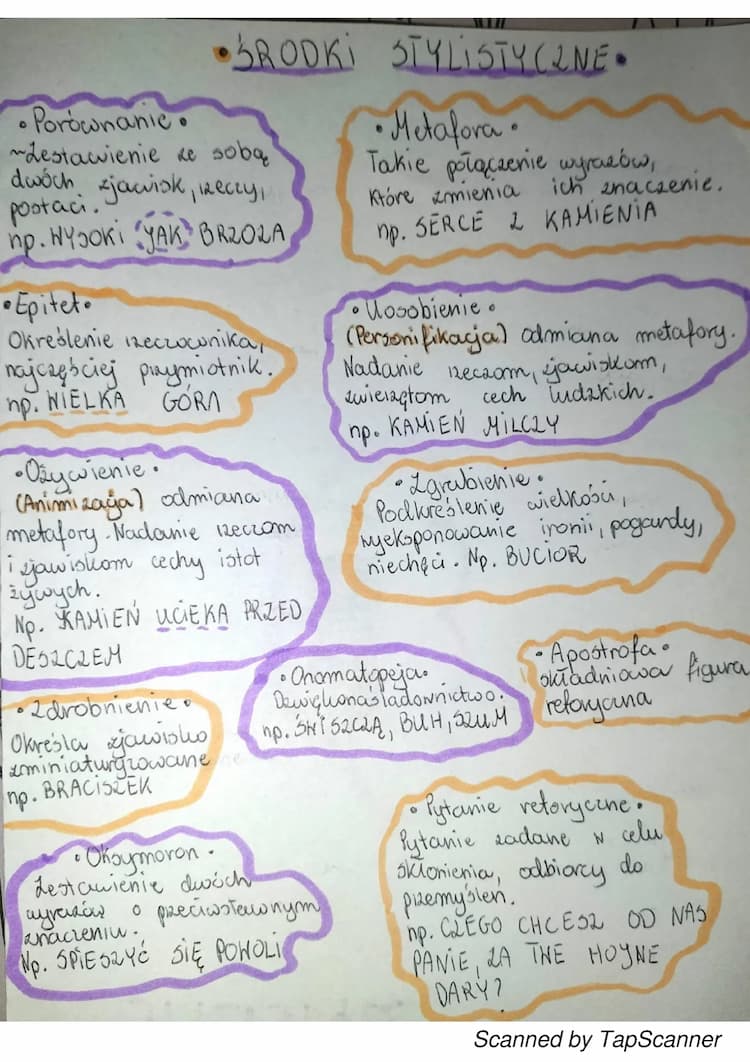 •ŚRODKI STYLISTYCZNE•
•Porównanie•
~Zestawienie ze sobą
dwóch zjawisk, rzeczy,
postaci.
np. WYSOKI JAK BRZOZA
•Metafora•
Takie połączenie wyrazów,
które zmienia ich znaczenie.
np. SERCE Z KAMIENIA
•Epitet•
Określenie rzeczownika,
najczęściej przymiotnik.
np. WIELKA GÓRA
•Uosobienie•
(Personifikacja) odmiana metafory.
Nadanie rzeczom, zjawiskom,
zwierzętom cech ludzkich.
np. KAMIEŃ MILCZY
•Ożywienie•
(Animizacja) odmiana
metafory. Nadanie rzeczom
i zjawiskom cechy istot
żywych.
Np. KAMIEŃ UCIEKA PRZED
DESZCZEM
•Zgrubienie•
Podkreślenie wielkości,
wyeksponowanie ironii, pogardy,
niechęci. Np. BUCIOR
•Onomatopeja•
Dźwiękonaśladownictwo.
np. ŚWISZCZĄ, BUH, SZUM
•Apostrofa•
składniowa figura
retoryczna
•Zdrobnienie•
Określa zjawisko
zminiaturyzowane
np. BRACISZEK
•Oksymoron•
Zestawienie dwóch
wyrazów o przeciwstawnym
znaczeniu.
Np. ŚPIESZYĆ SIĘ POWOLI
•Pytanie retoryczne•
Pytanie zadane w celu
skłonienia, odbiorcy do
przemyśleń.
np. CZEGO CHCESZ OD NAS
PANIE, ZA TWE HOJNE
DARY?
Scanned by TapScanner